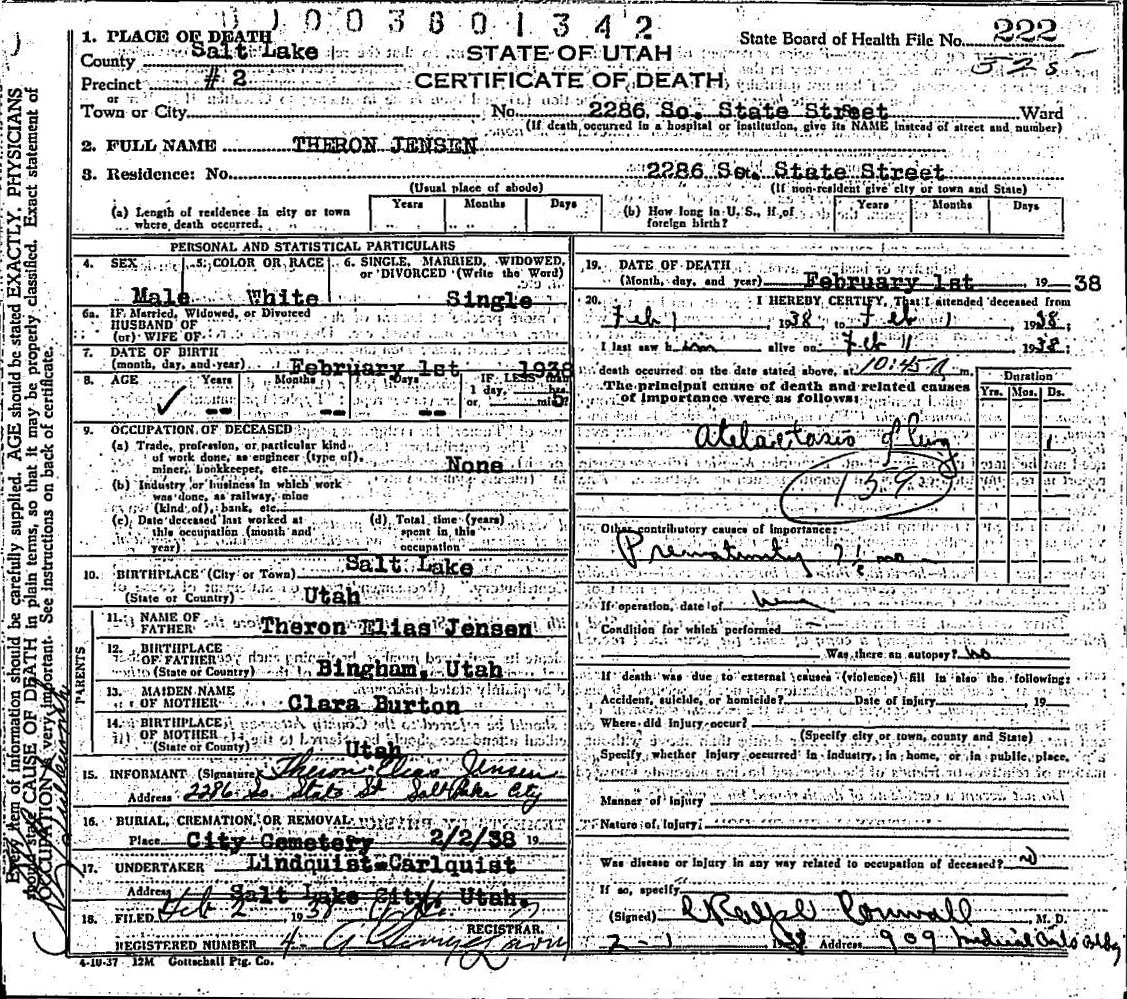 01003801342
1. PLACE OF DEATH
County Salt Lake
Precinct #2
or
Town or City
STATE OF UTAH
CERTIFICATE OF DEATH
State Board of Health File No. 222
No. 2286 So. State Street Ward
(If death occurred in a hospital or institution, give its NAME instead of street and number)
2. FULL NAME THERON JENSEN
3. Residence: No. 2286 So. State Street
(Usual place of abode) (If non-resident give city or town and State)
(a) Length of residence in city or town where death occurred. Years Months Days
(b) How long in U. S., if of foreign birth? Years Months Days
PERSONAL AND STATISTICAL PARTICULARS
4. SEX Male
5. COLOR OR RACE White
6. SINGLE, MARRIED, WIDOWED, or DIVORCED (Write the Word) Single
6a. IF Married, Widowed, or Divorced
HUSBAND OF
(or) WIFE OF
7. DATE OF BIRTH
(month, day, and year) February 1st 1938
8. AGE Years -- Months -- Days --
IF LESS than
1 day, hrs.
or min. 5
9. OCCUPATION OF DECEASED
(a) Trade, profession, or particular kind
of work done, as engineer (type of),
miner, bookkeeper, etc. None
(b) Industry or business in which work
was done, as railway, mine
(kind of), bank, etc.
(c) Date deceased last worked at
this occupation (month and
year)
(d) Total time (years)
spent in this
occupation
10. BIRTHPLACE (City or Town) Salt Lake
(State or Country) Utah
PARENTS
11. NAME OF
FATHER Theron Elias Jensen
12. BIRTHPLACE
OF FATHER
(State or County) Bingham, Utah
13. MAIDEN NAME
OF MOTHER Clara Burton
14. BIRTHPLACE
OF MOTHER
(State or County) Utah
15. INFORMANT (Signature) Theron Elias Jensen
Address 2286 So. State St Salt Lake City
16. BURIAL, CREMATION, OR REMOVAL
Place City Cemetery 2/2/38 19
17. UNDERTAKER Lindquist-Carlquist
Address Salt Lake City, Utah.
18. FILED Feb 2 1938
REGISTRAR.
REGISTERED NUMBER
4-10-37 12M Gottschall Ptg. Co.
19. DATE OF DEATH
(Month, day, and year) February 1st 19 38
20. I HEREBY CERTIFY, That I attended deceased from
Feb 1 1938, to Feb 1 1938;
I last saw him alive on Feb 1 1938;
death occurred on the date stated above, at 10:45 A m.
The principal cause of death and related causes
of importance were as follows:
Duration
Yrs. Mos. Ds.
Atelectasis of lung 1
159
Other contributory causes of importance:
Prematurity 7½ mo
If operation, date of
Condition for which performed
Was there an autopsy? no
If death was due to external causes (violence) fill in also the following:
Accident, suicide, or homicide? Date of injury 19
Where did injury occur?
(Specify city or town, county and State)
Specify whether injury occurred in industry, in home, or in public place.
Manner of injury
Nature of injury
Was disease or injury in any way related to occupation of deceased? no
If so, specify
(Signed) Ralph Cornwall M. D.
2-1 1938 Address 909 Medical Arts Bldg
Every item of information should be carefully supplied. AGE should be stated EXACTLY. PHYSICIANS
should state CAUSE OF DEATH in plain terms, so that it may be properly classified. Exact statement of
OCCUPATION is very important. See instructions on back of certificate.